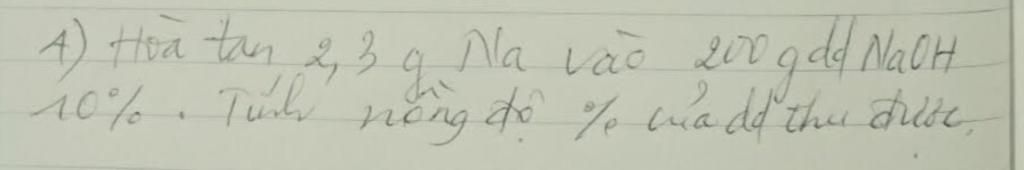 A) Hoà tan 2,3 g Na vào 200 g dd NaOH
10% . Tính nồng độ % của dd thu được.